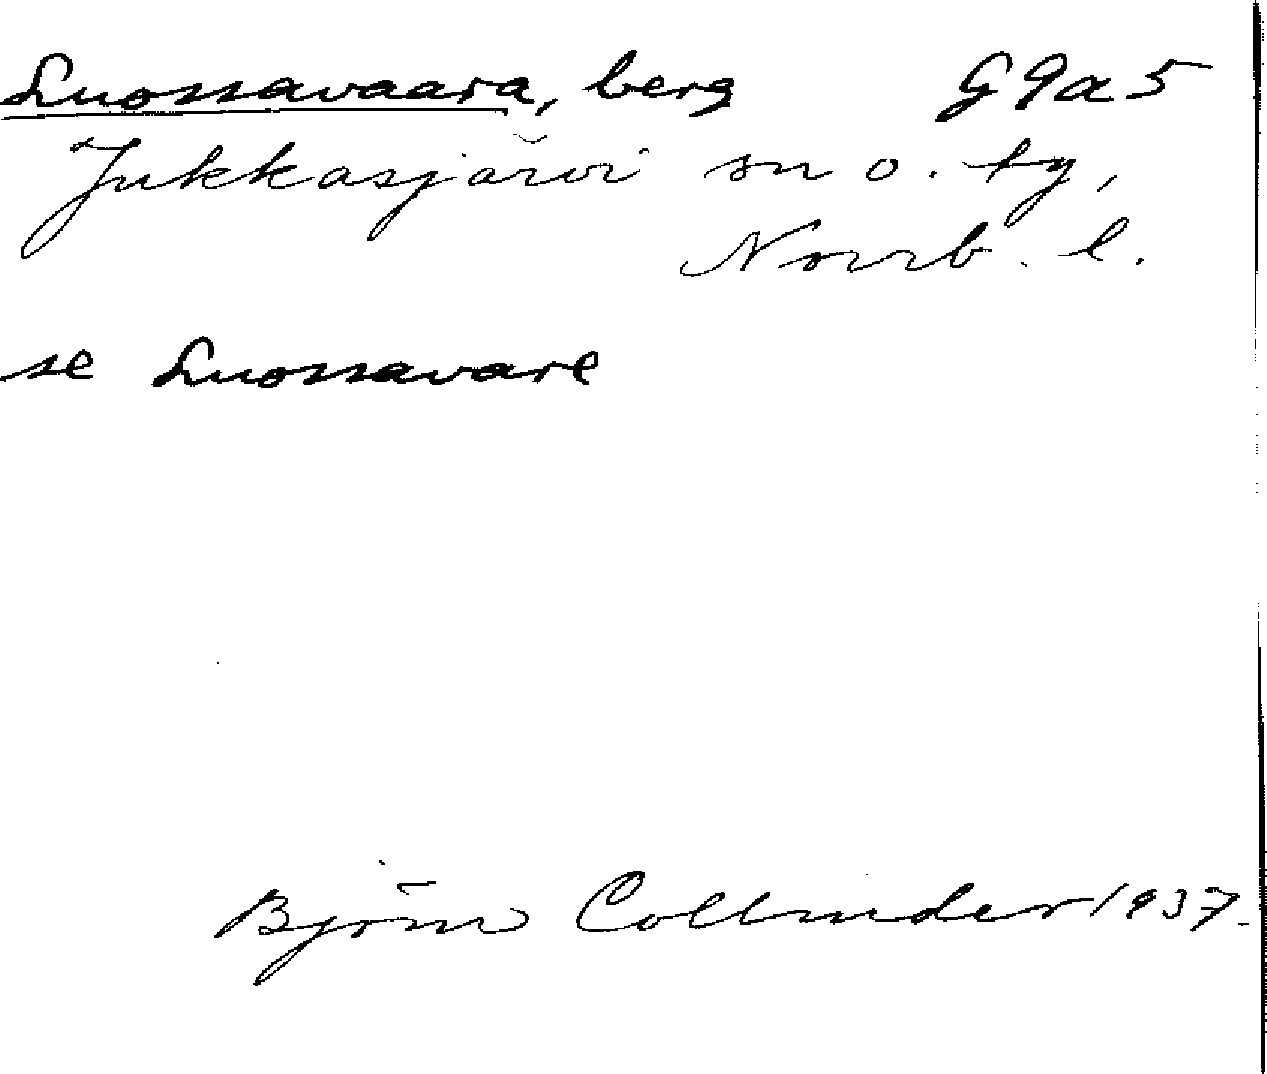 Luossavaara, berg G9a5
Jukkasjärvi sn o. tg,
Norrb. l.
se Luossavare
Björn Collinder 1937.